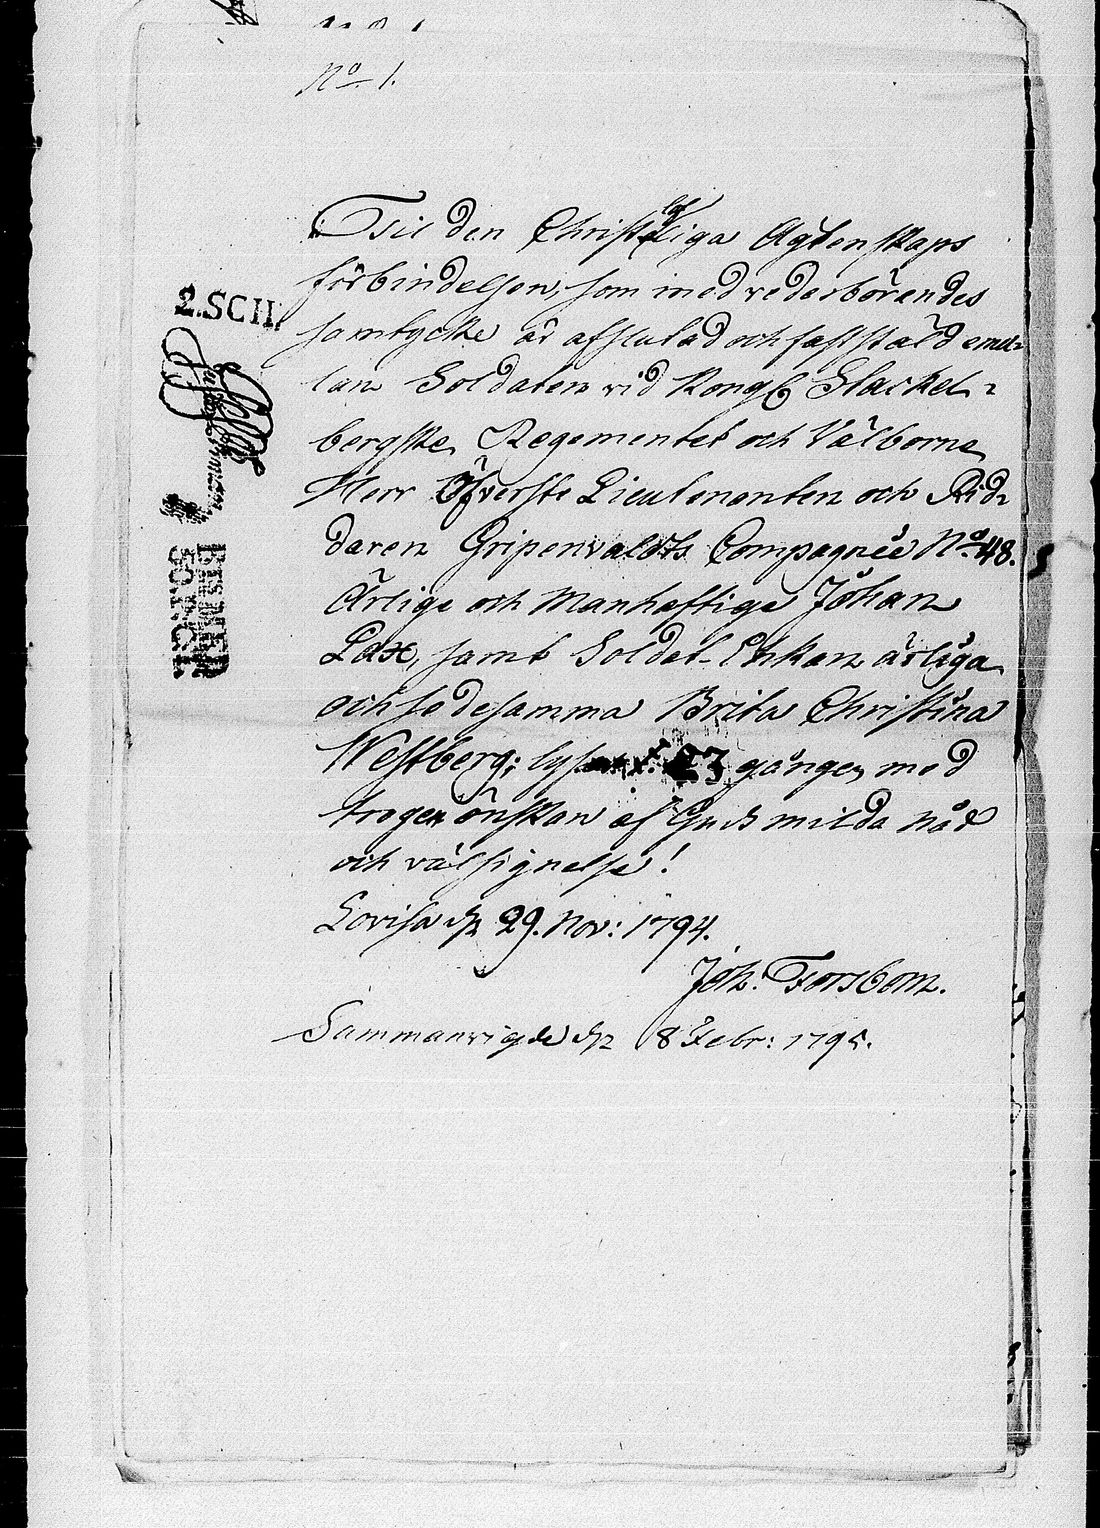 No 1.
Til den Christeliga Ägtenskaps
förbindelsen, som med vederbörandes
samtycke är afslutad och fastståld emel-
lan Soldaten vid Kongl Stackel-
bergske Regementet och Välborne
Herr Öfverste Lieutenanten och Rid-
daren Gripenvaldts Compagnie No 48.
Ärlige och Manhaftige Johan
Lax, samt Soldat-Enkan ärliga
och sedesamma Brita Christina
Westberg; 23 gången med
trogen önskan af Guds milda nåd
och välsignelse!
Lovisa d. 29. Nov: 1794.
Joh: Forsbom.
Sammanvigde d. 8 Febr: 1795.
2.SCH.